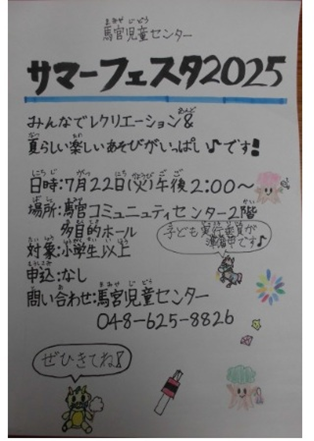 馬宮児童センター
サマーフェスタ2025
みんなでレクリエーション&
夏らしい楽しいあそびがいっぱい♪です!
日時:7月22日(火)午後2:00～
場所:馬宮コミュニティセンター2階
多目的ホール
対象:小学生以上
子ども実行委員が
準備中です♪
申込:なし
問い合わせ:馬宮児童センター
048-625-8826
ぜひきてね!